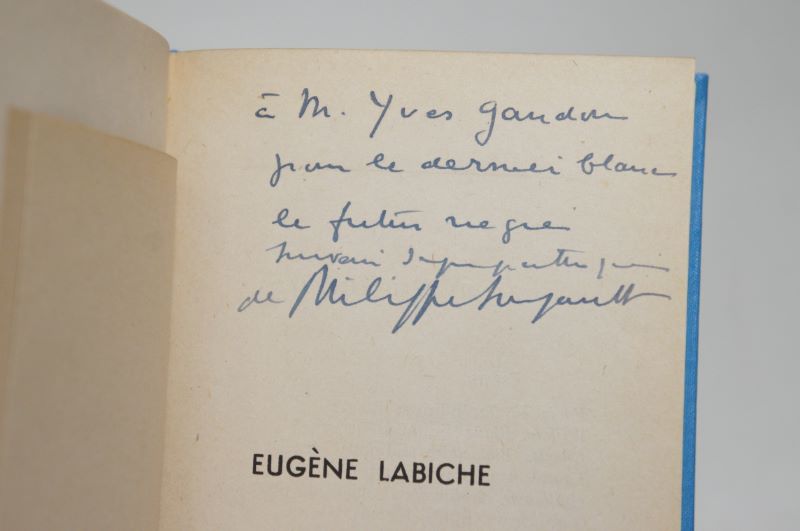 à M. Yves Gandon
pour le dernier blanc
le futur nègre
souvenir sympathique
de Philippe Soupault
EUGÈNE LABICHE